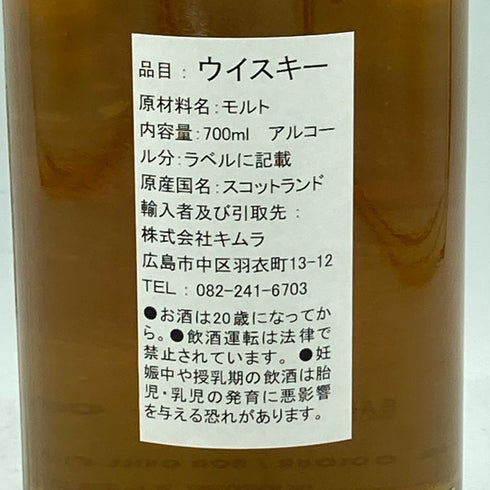 品目： ウイスキー
原材料名：モルト
内容量：700ml　アルコー
ル分：ラベルに記載
原産国名：スコットランド
輸入者及び引取先：
株式会社キムラ
広島市中区羽衣町13-12
TEL： 082-241-6703
●お酒は20歳になってか
ら。●飲酒運転は法律で
禁止されています。 ●妊
娠中や授乳期の飲酒は胎
児・乳児の発育に悪影響
を与える恐れがあります。